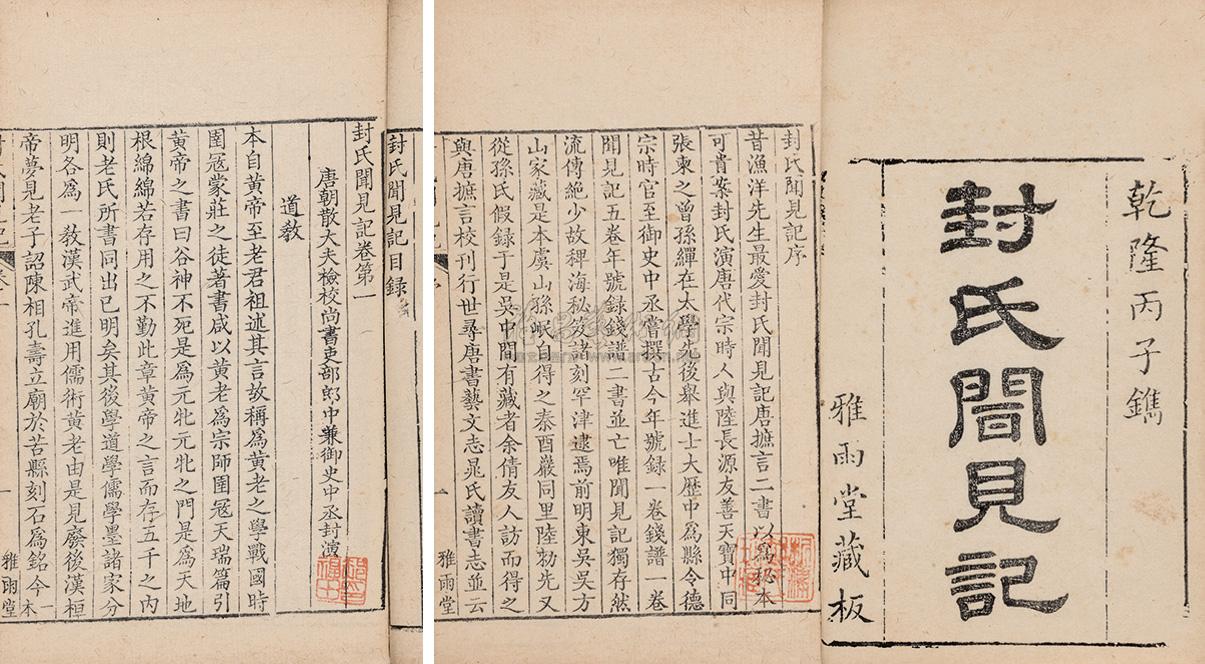 乾隆丙子鐫
封氏聞見記
雅雨堂藏板
封氏聞見記序
昔漁洋先生最愛封氏聞見記唐摭言二書以爲祕本
可貴案封氏演唐代宗時人與陸長源友善天寶中同
張柬之曾孫繟在太學先後舉進士大歷中爲縣令德
宗時官至御史中丞嘗撰古今年號録一卷錢譜一卷
聞見記五卷年號録錢譜二書並亡唯聞見記獨存然
流傳絶少故稗海秘笈諸刻罕津逮焉前明東吳吳方
山家藏是本虞山孫岷自得之秦酉巖同里陸勑先又
從孫氏假録于是吳中間有藏者余倩友人訪而得之
與唐摭言校刊行世尋唐書藝文志晁氏讀書志並云
雅雨堂
封氏聞見記目録
封氏聞見記卷第一
唐朝散大夫檢校尚書吏部郎中兼御史中丞封演
道教
本自黄帝至老君祖述其言故稱爲黄老之學戰國時
圉冦蒙莊之徒著書咸以黄老爲宗師圉冦天瑞篇引
黄帝之書曰谷神不死是爲元牝元牝之門是爲天地
根綿綿若存用之不勤此章黄帝之言而存五千之内
則老氏所書同出已明矣其後學道學儒學墨諸家分
明各爲一教漢武帝進用儒術黄老由是見廢後漢桓
帝夢見老子詔陳相孔壽立廟於苦縣刻石爲銘今一本
雅雨堂